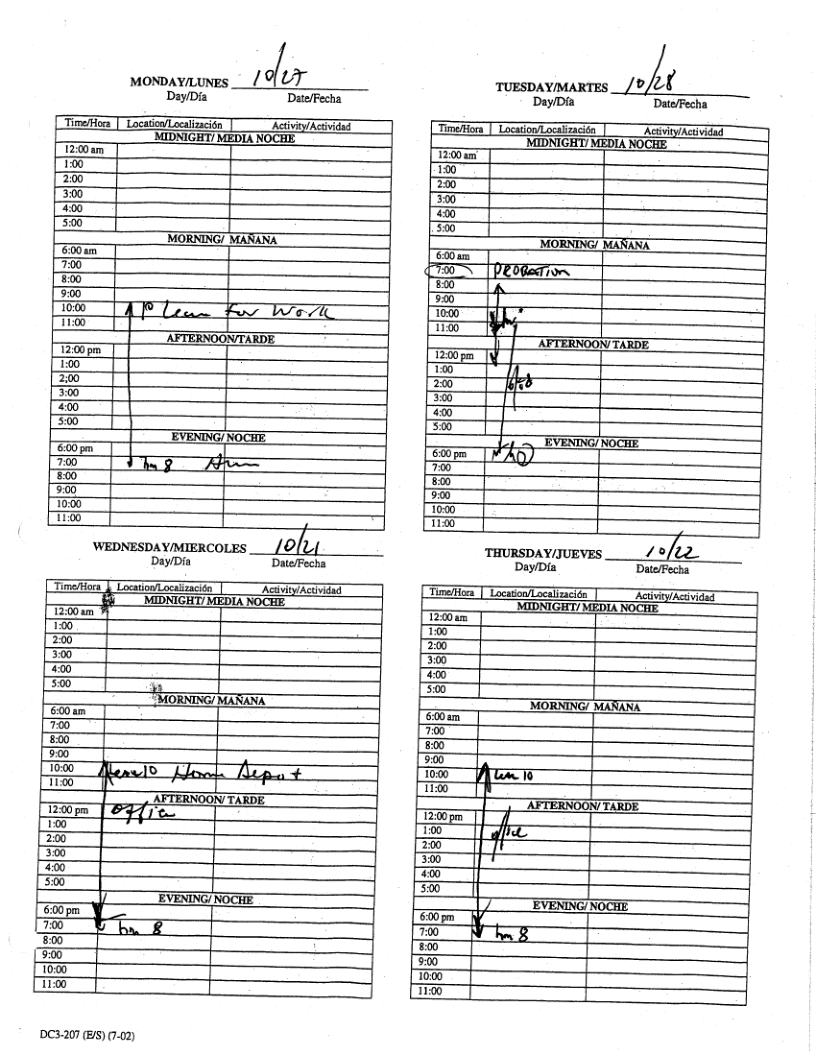 MONDAY/LUNES 10/27
Day/Día Date/Fecha
Time/Hora Location/Localización Activity/Actividad
MIDNIGHT/ MEDIA NOCHE
12:00 am
1:00
2:00
3:00
4:00
5:00
MORNING/ MAÑANA
6:00 am
7:00
8:00
9:00
10:00 10 Leave For Work
11:00
AFTERNOON/TARDE
12:00 pm
1:00
2:00
3:00
4:00
5:00
EVENING/ NOCHE
6:00 pm
7:00 hm 8
8:00
9:00
10:00
11:00
TUESDAY/MARTES 10/28
Day/Día Date/Fecha
Time/Hora Location/Localización Activity/Actividad
MIDNIGHT/ MEDIA NOCHE
12:00 am
1:00
2:00
3:00
4:00
5:00
MORNING/ MAÑANA
6:00 am
7:00 PROBATION
8:00
9:00
10:00
11:00
AFTERNOON/ TARDE
12:00 pm
1:00
2:00
3:00
4:00
5:00
EVENING/ NOCHE
6:00 pm
7:00
8:00
9:00
10:00
11:00
WEDNESDAY/MIERCOLES 10/21
Day/Día Date/Fecha
Time/Hora Location/Localización Activity/Actividad
MIDNIGHT/ MEDIA NOCHE
12:00 am
1:00
2:00
3:00
4:00
5:00
MORNING/ MAÑANA
6:00 am
7:00
8:00
9:00
10:00 Leave 10 Home Depot
11:00
AFTERNOON/ TARDE
12:00 pm office
1:00
2:00
3:00
4:00
5:00
EVENING/ NOCHE
6:00 pm
7:00 hm 8
8:00
9:00
10:00
11:00
THURSDAY/JUEVES 10/22
Day/Día Date/Fecha
Time/Hora Location/Localización Activity/Actividad
MIDNIGHT/ MEDIA NOCHE
12:00 am
1:00
2:00
3:00
4:00
5:00
MORNING/ MAÑANA
6:00 am
7:00
8:00
9:00
10:00 10
11:00
AFTERNOON/ TARDE
12:00 pm
1:00 office
2:00
3:00
4:00
5:00
EVENING/ NOCHE
6:00 pm
7:00 hm 8
8:00
9:00
10:00
11:00
DC3-207 (E/S) (7-02)